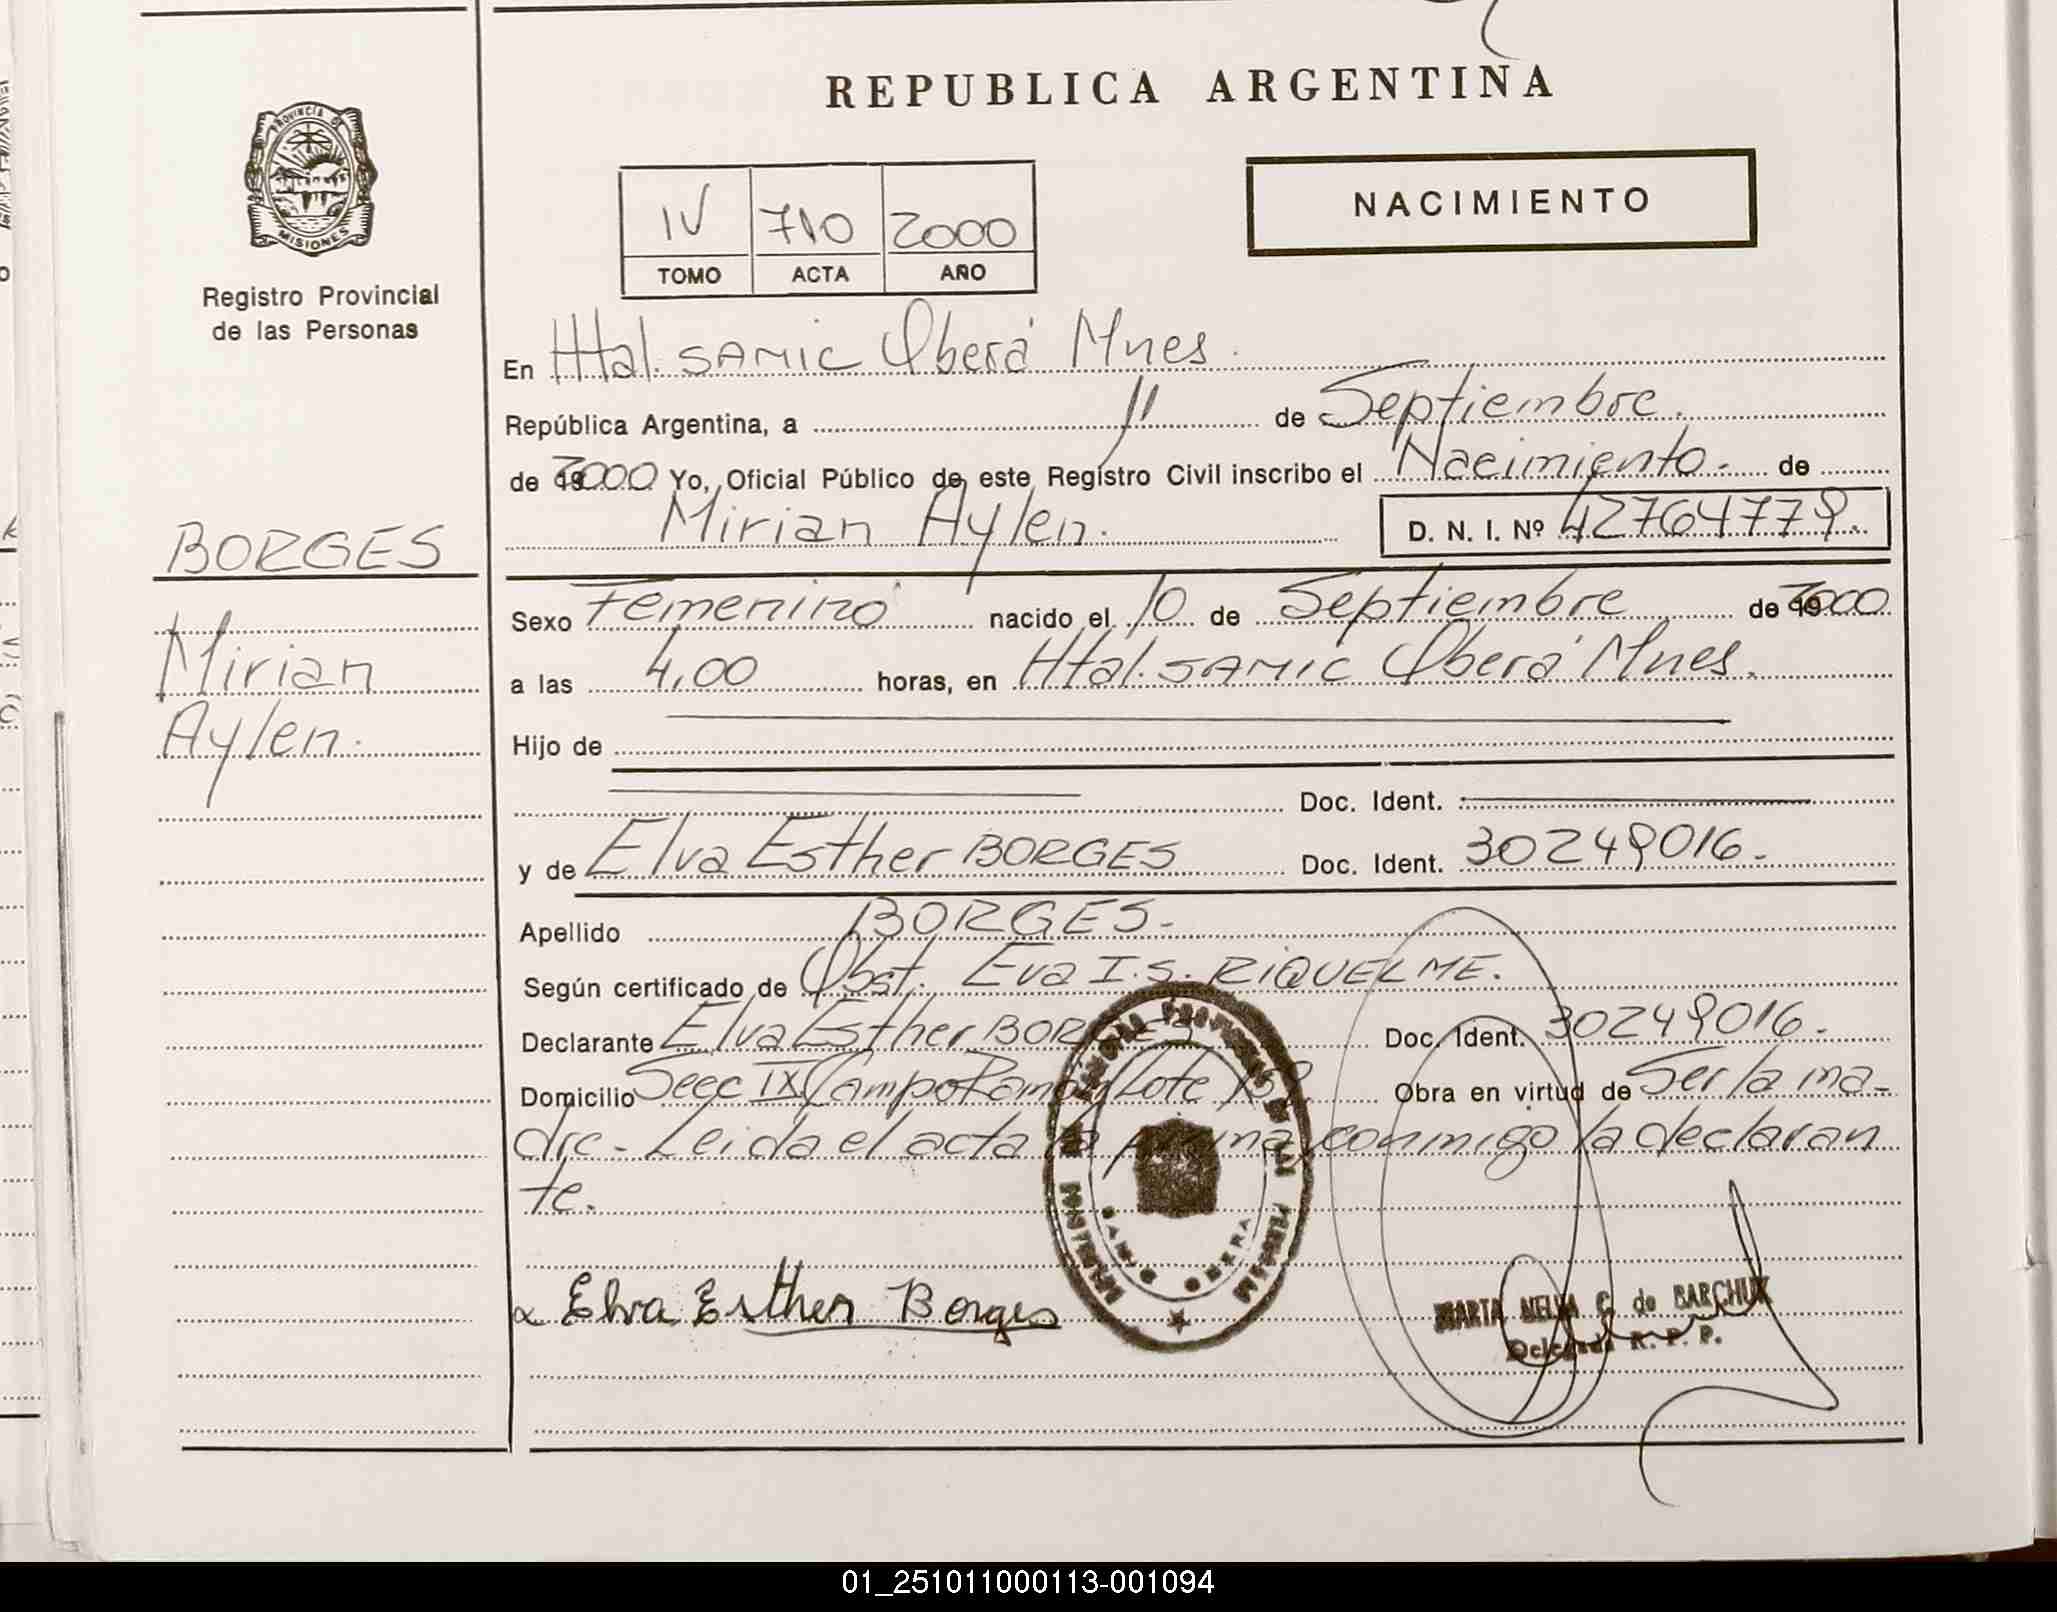 REPUBLICA ARGENTINA
PROVINCIA DE
MISIONES
Registro Provincial
de las Personas
NACIMIENTO
IV 710 2000
TOMO ACTA AÑO
En Htal. SAMIC Oberá Mnes.
República Argentina, a 11 de Septiembre.
de 2000 Yo, Oficial Público de este Registro Civil inscribo el Nacimiento. de
Mirian Aylen. D. N. I. Nº 42764779.
BORGES
Mirian
Aylen.
Sexo Femenino nacido el 10 de Septiembre de 2000
a las 4,00 horas, en Htal. SAMIC Oberá Mnes.
Hijo de
Doc. Ident.
y de Elva Esther BORGES Doc. Ident. 30249016.
Apellido BORGES.
Según certificado de Obst. Eva I.S. RIQUELME.
Declarante Elva Esther BORGES Doc. Ident. 30249016.
Domicilio Secc IX Campo Ramón Lote Obra en virtud de Ser la ma-
dre. Leida el acta la firma conmigo la declaran
te.
Elva Esther Borges
MARTA NELVA C. de BARCHUK
Delegada R. P. P.
01_251011000113-001094